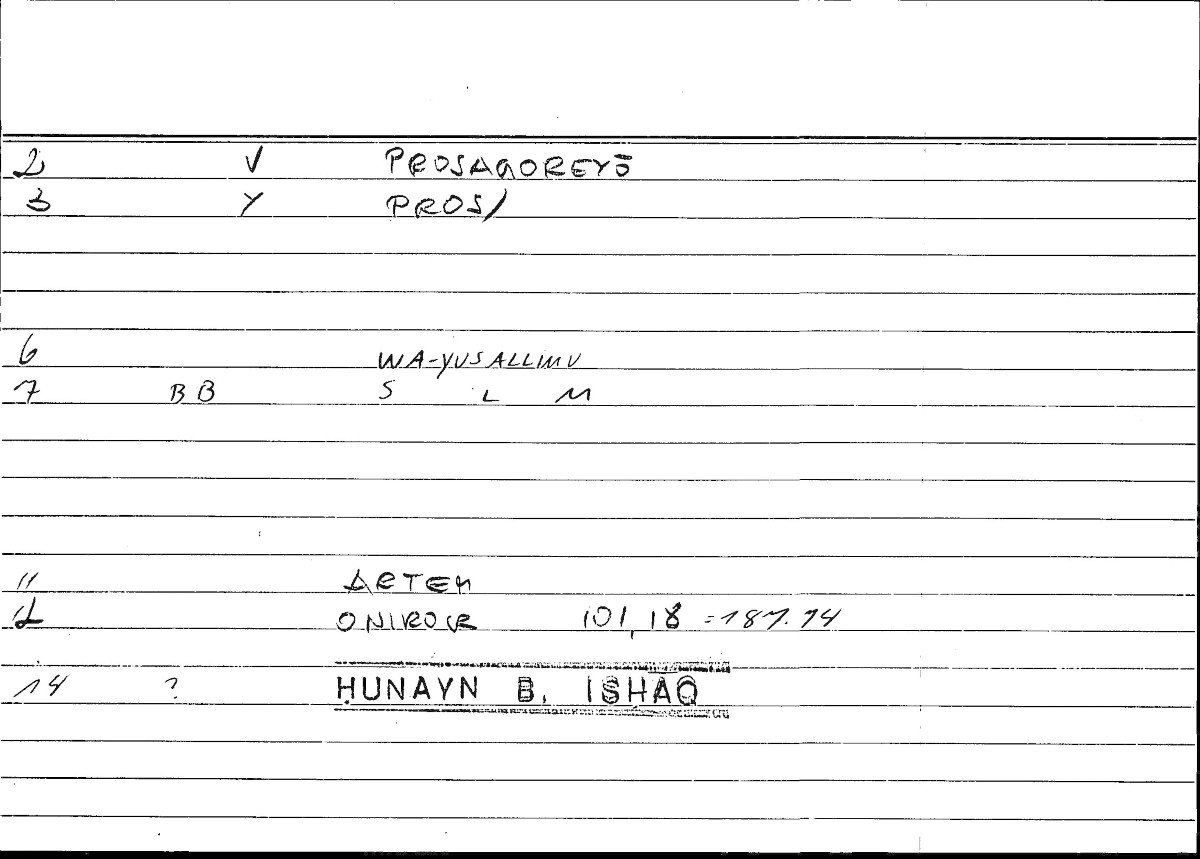 2 V PROSAGOREYŌ
3 Y PROS/
6 WA-YUSALLIMU
7 BB S L M
11 ARTEM
12 ONIROCR 101,18 = 187.14
14 ? ḤUNAYN B. ISḤĀQ